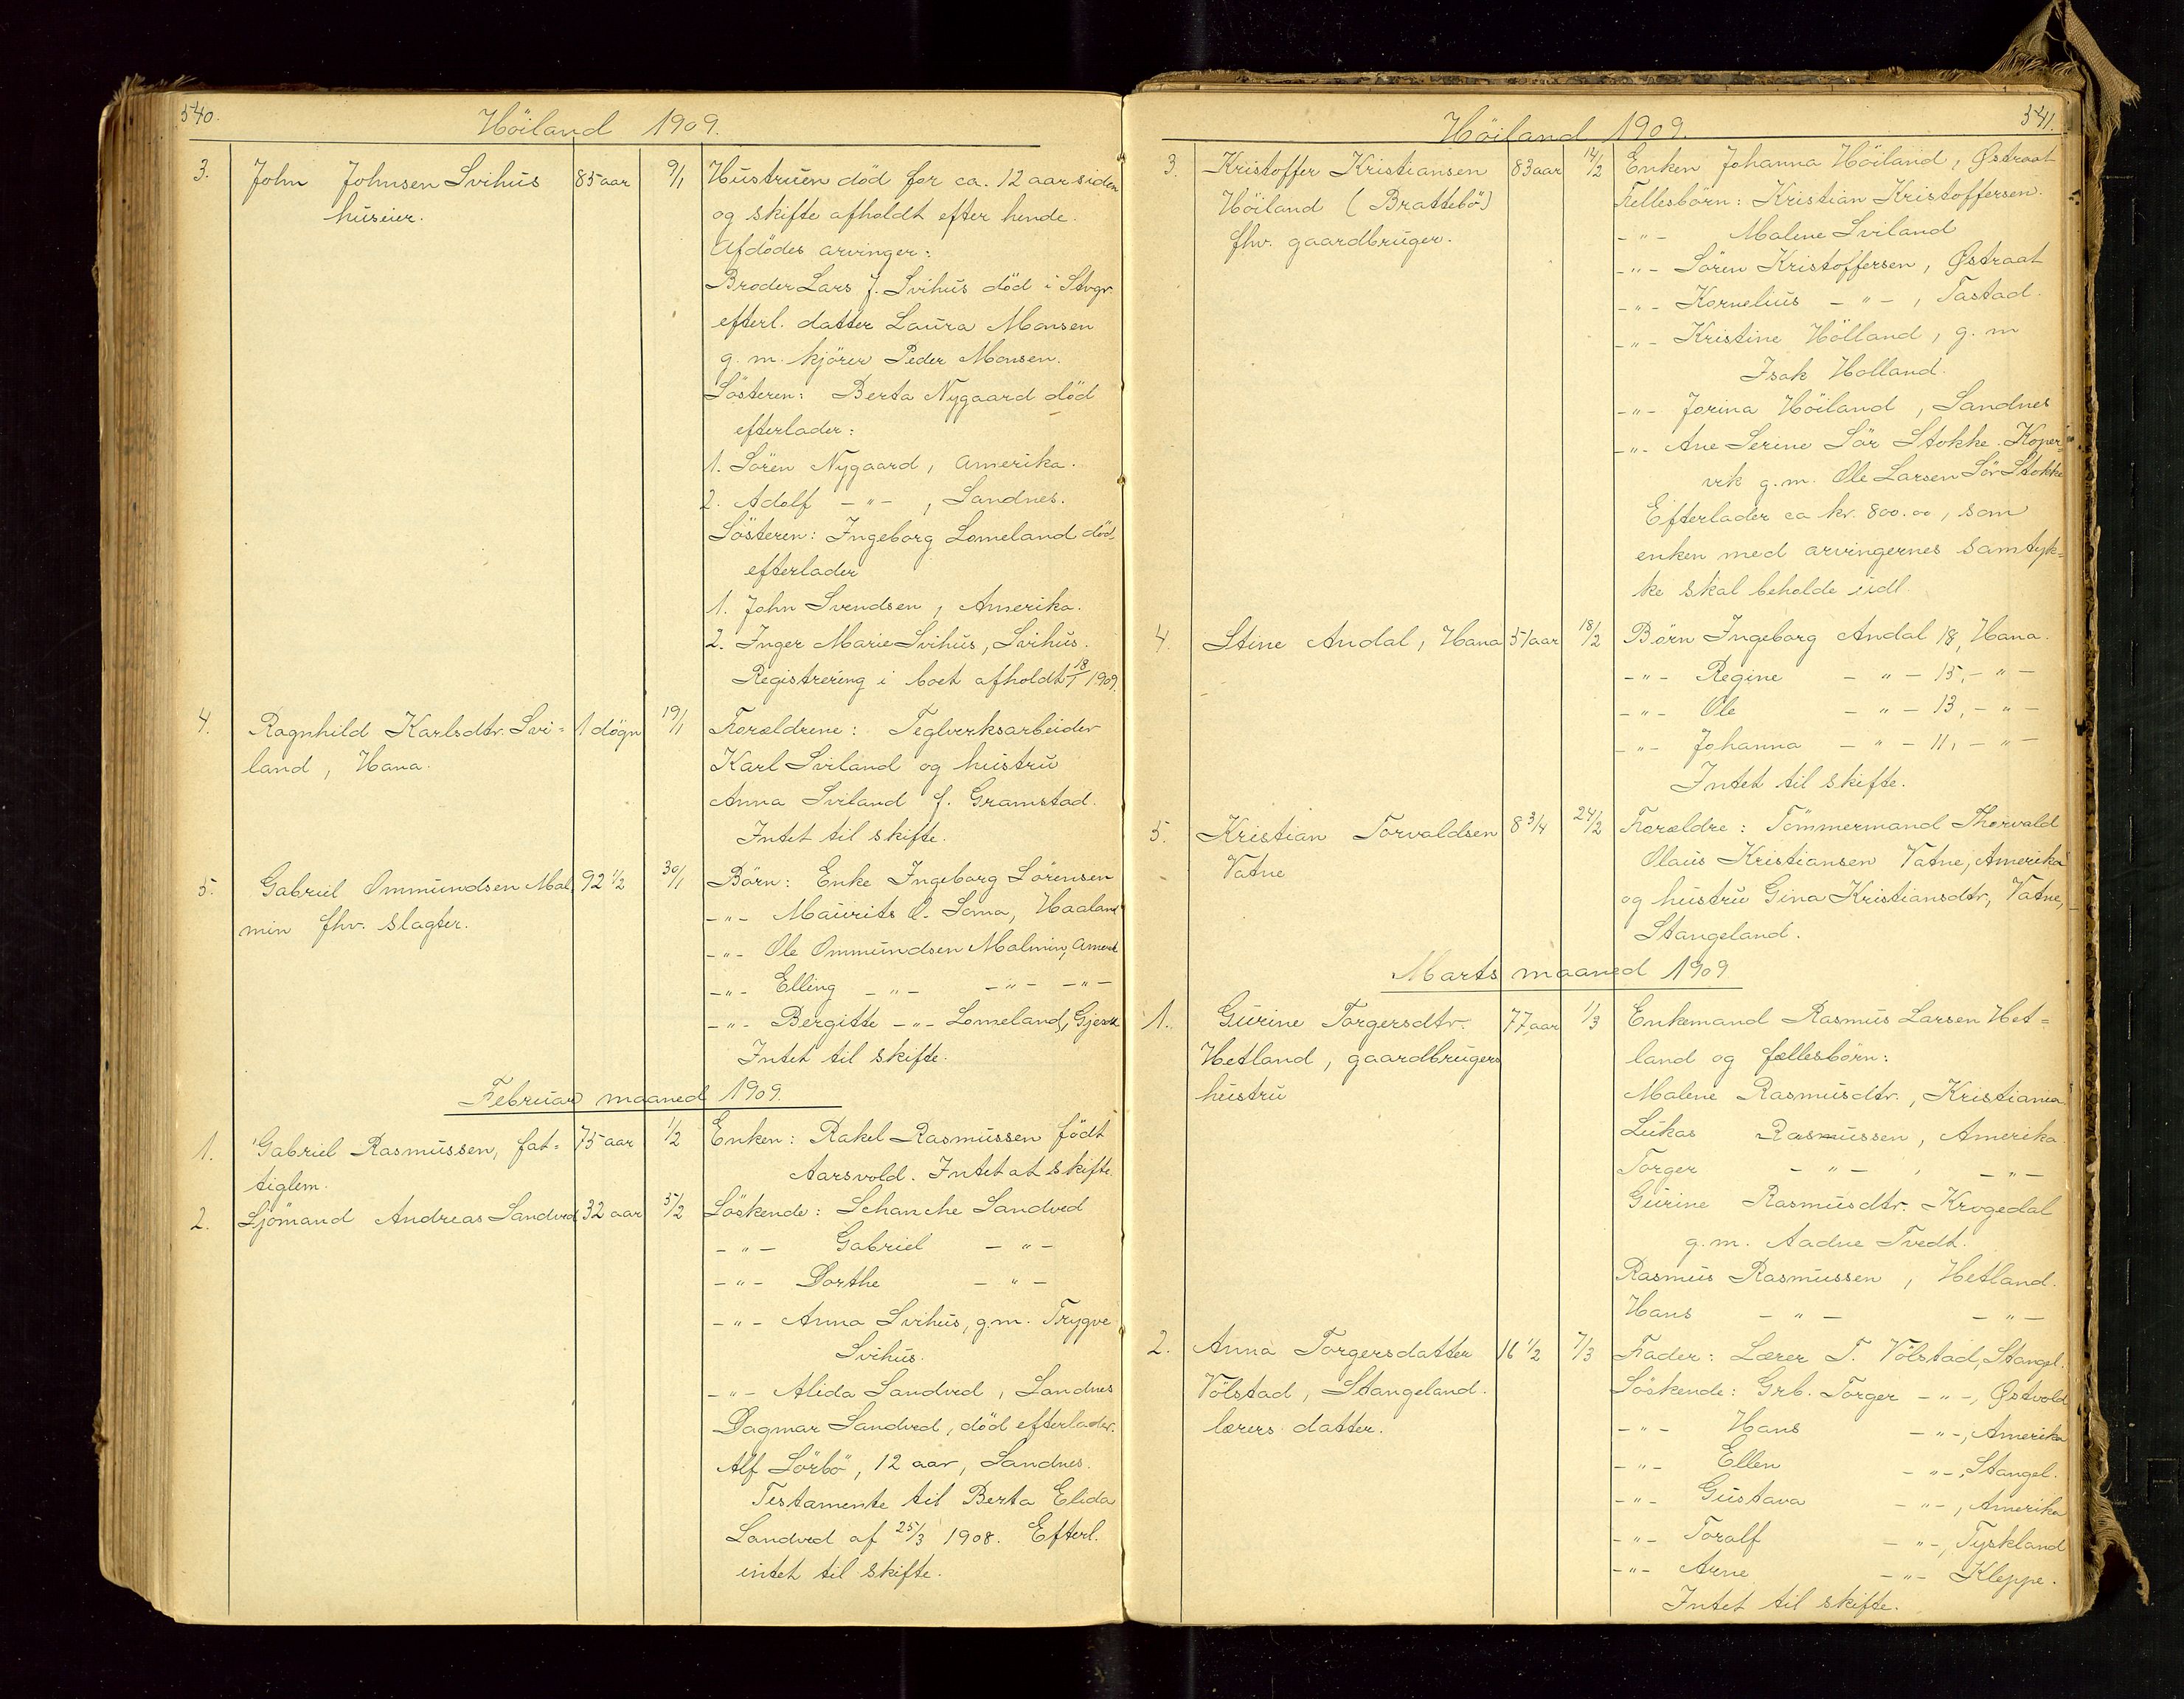 540.
Höiland 1909.
3. John Johnsen Svihus 85 aar 9/1 Hustruen död for ca. 12 aar siden
huseier. og skifte afholdt efter hende.
Afdödes arvinger:
Broder Lars J. Svihus död i Stvgr.
efterl. datter Laura Monsen
g. m. kjörer Peder Monsen.
Sösteren: Berta Nygaard död
efterlader:
1. Sören Nygaard, Amerika.
2. Adolf - " - , Sandnes.
Sösteren: Ingeborg Lomeland död
efterlader
1. John Svendsen, Amerika.
2. Inger Marie Svihus, Svihus.
Registrering i boet afholdt 18/1 1909.
4. Ragnhild Karlsdtr. Svi= 1 dögn 19/1 Forældrene: Teglverksarbeider
land, Hana. Karl Sviland og hustru
Anna Sviland f. Gramstad.
Intet til skifte.
5. Gabriel Ommundsen Mal 92 1/2 30/1 Börn: Enke Ingeborg Sörensen
min fhv. slagter. - " - Maurits O. Soma, Haaland
- " - Ole Ommundsen Malmin, Amerik
- " - Elling - " - - " - - " -
- " - Bergitte - " - Lomeland, Gjesd
Intet til skifte.
Februar maaned 1909.
1. Gabriel Rasmussen, fat= 75 aar 1/2 Enken: Rakel Rasmussen födt
tiglem. Aarsvold. Intet at skifte.
2. Sjömand Andreas Sandved 32 aar 5/2 Söskende: Schanche Sandved
- " - Gabriel - " -
- " - Dorthe - " -
- " - Anna Svihus, g.m. Trygve
Svihus.
- " - Alida Sandved, Sandnes
Dagmar Sandved, död efterlader.
Alf Sörbö, 12 aar, Sandnes.
Testamente til Berta Elida
Sandved af 25/3 1908. Efterl.
intet til skifte.
541.
Höiland 1909.
3. Kristoffer Kristiansen 83 aar 14/2 Enken Johanna Höiland, Østraat
Höiland (Brattebö) Fellesbörn: Kristian Kristoffersen.
fhv. gaardbruger. - " - Malene Sviland
- " - Sören Kristoffersen, Østraat
- " - Kornelius - " - , Tastad.
- " - Kristine Hölland, g. m
Isak Holland.
- " - Jorina Höiland, Sandnes
- " - Ane Serine Sör Stokke. Koper=
vik g.m. Ole Larsen Sör Stokke
Efterlader ca kr. 800.00, som
enken med arvingernes samtyk=
ke skal beholde udl.
4. Stine Andal, Hana 51 aar 18/2 Börn Ingeborg Andal 18, Hana.
- " - Regine - " - 15, - " -
- " - Ole - " - 13, - " -
- " - Johanna - " - 11, - " -
Intet til skifte.
5. Kristian Torvaldsen 8 3/4 24/2 Forældre: Tömmermand Thorvald
Vatne Olaus Kristiansen Vatne, Amerika
og hustru Gina Kristiansdtr, Vatne,
Stangeland.
Marts maaned 1909
1. Gurine Torgersdtr. 77 aar 1/3 Enkemand Rasmus Larsen Het=
Hetland, gaardbrugers land og fællesbörn:
hustru Malene Rasmusdtr., Kristiania.
Lukas Rasmussen, Amerika.
Torger - " - , - " -
Gurine Rasmusdtr. Krogedal
g.m. Aadne Tvedt.
Rasmus Rasmussen, Hetland.
Hans - " - - " -
2. Anna Torgersdatter 16 1/2 7/3 Fader: Lærer T. Völstad, Stangel.
Völstad, Stangeland. Söskende: Grb. Torger - " -, Østvold
lærers datter. - " - Hans - " -, Amerika
- " - Ellen - " -, Stangel.
- " - Gustava - " -, Amerika
- " - Toralf - " -, Tyskland
- " - Arne - " - Kleppe.
Intet til skifte.